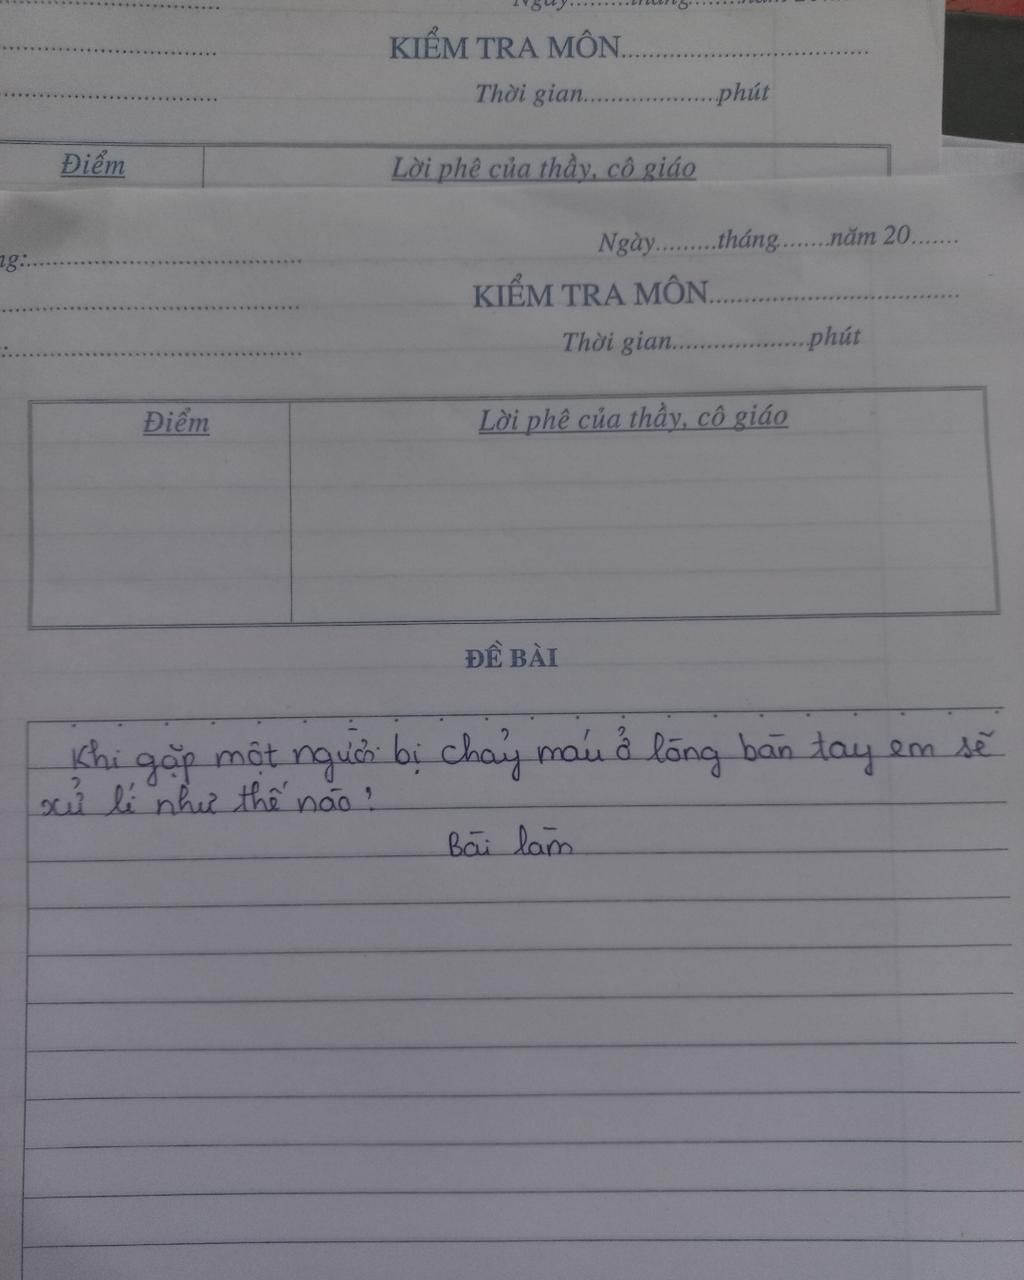 Ngày.........tháng.........năm 20
KIỂM TRA MÔN...................................
Thời gian....................phút
Điểm
Lời phê của thầy, cô giáo
Ngày.........tháng........năm 20.......
ng:.........................................
KIỂM TRA MÔN...................................
Thời gian....................phút
Điểm
Lời phê của thầy, cô giáo
ĐỀ BÀI
Khi gặp một người bị chảy máu ở lòng bàn tay em sẽ
xử lí như thế nào?
Bài làm